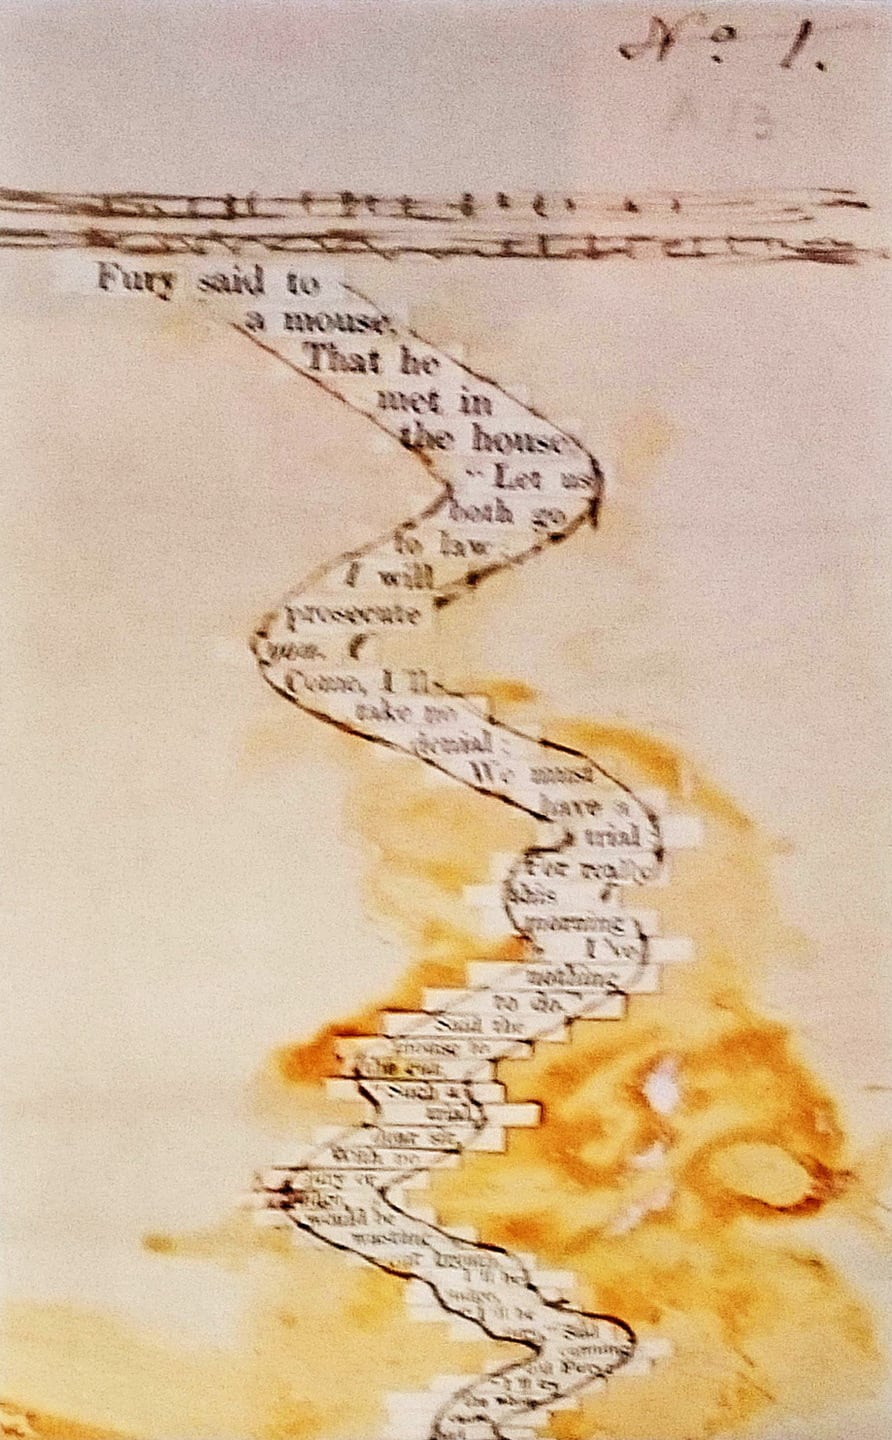 Nº 1.
A 13
Fury said to
a mouse,
That he
met in
the house,
"Let us
both go
to law:
I will
prosecute
you.
Come, I'll
take no
denial:
We must
have a
trial
For really
this
morning
I've
nothing
to do."
Said the
mouse to
the cur,
"Such a
trial,
dear sir,
With no
jury or
judge,
would be
wasting
our breath."
"I'll be
judge,
I'll be
jury," Said
cunning
old Fury;
"I'll try
the whole
cause